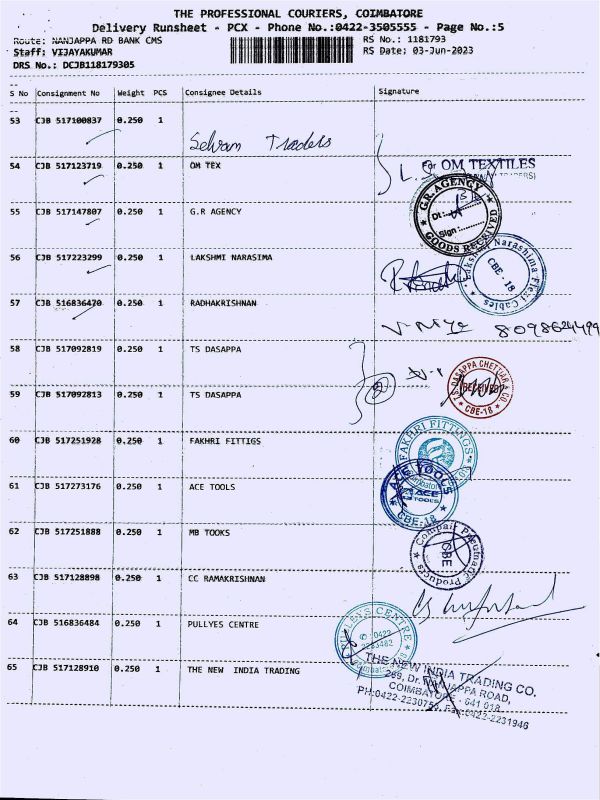 THE PROFESSIONAL COURIERS, COIMBATORE
Delivery Runsheet - PCX - Phone No.:0422-3505555 - Page No.:5
Route: NANJAPPA RD BANK CMS RS No.: 1181793
Staff: VIJAYAKUMAR RS Date: 03-Jun-2023
DRS No.: DCJB118179305
S No Consignment No Weight PCS Consignee Details Signature
53 CJB 517100837 0.250 1
Selvam Traders
54 CJB 517123719 0.250 1 OM TEX
For OM TEXTILES
55 CJB 517147807 0.250 1 G.R AGENCY
G.R. AGENCY
Dt:
Sign:
GOODS RECEIVED
56 CJB 517223299 0.250 1 LAKSHMI NARASIMA
Lakshmi Narashima Flexi Cables
CBE - 18
57 CJB 516836470 0.250 1 RADHAKRISHNAN
8098624499
58 CJB 517092819 0.250 1 TS DASAPPA
T.S. DASAPPA CHETTIAR & CO.
RECEIVED
CBE-18
59 CJB 517092813 0.250 1 TS DASAPPA
2
60 CJB 517251928 0.250 1 FAKHRI FITTIGS
FAKHRI FITTINGS
61 CJB 517273176 0.250 1 ACE TOOLS
ACE TOOLS
ACE
TOOLS
CBE-18
62 CJB 517251888 0.250 1 MB TOOKS
Compair Pneumatic Products
CBE
63 CJB 517128898 0.250 1 CC RAMAKRISHNAN
64 CJB 516836484 0.250 1 PULLYES CENTRE
PULLEYS CENTRE
0422
65 CJB 517128910 0.250 1 THE NEW INDIA TRADING
THE NEW INDIA TRADING CO.
269, Dr. NANJAPPA ROAD,
COIMBATORE - 641 018
PH:0422-2230754, Fax:0422-2231946